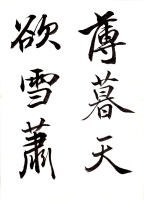 薄暮天
欲雪蕭